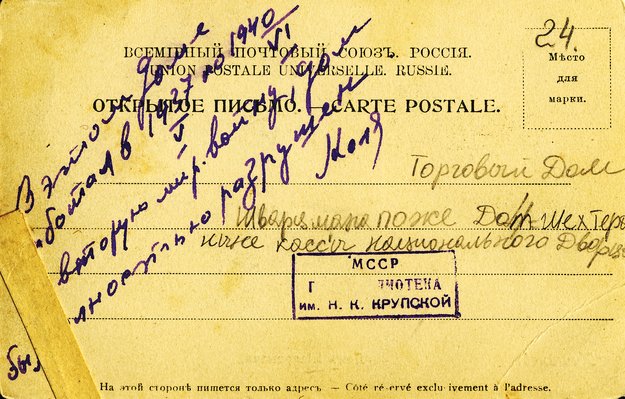 24.
ВСЕМІРНЫЙ ПОЧТОВЫЙ СОЮЗЪ. РОССІЯ.
UNION POSTALE UNIVERSELLE. RUSSIE.
ОТКРЫТОЕ ПИСЬМО. — CARTE POSTALE.
Мѣсто
для
марки.
В этом доме
ботал в 1927 по 1940
V VI
вторую мир. войну дом
лностью разрушен
Коля
Бы
Торговый Дом
Шварцмана позже Дом Шехтера
кассы национального Дворца
МССР
Г ЛИОТЕКА
им. Н. К. КРУПСКОЙ
На этой сторонѣ пишется только адресъ. — Côté réservé exclusivement à l'adresse.